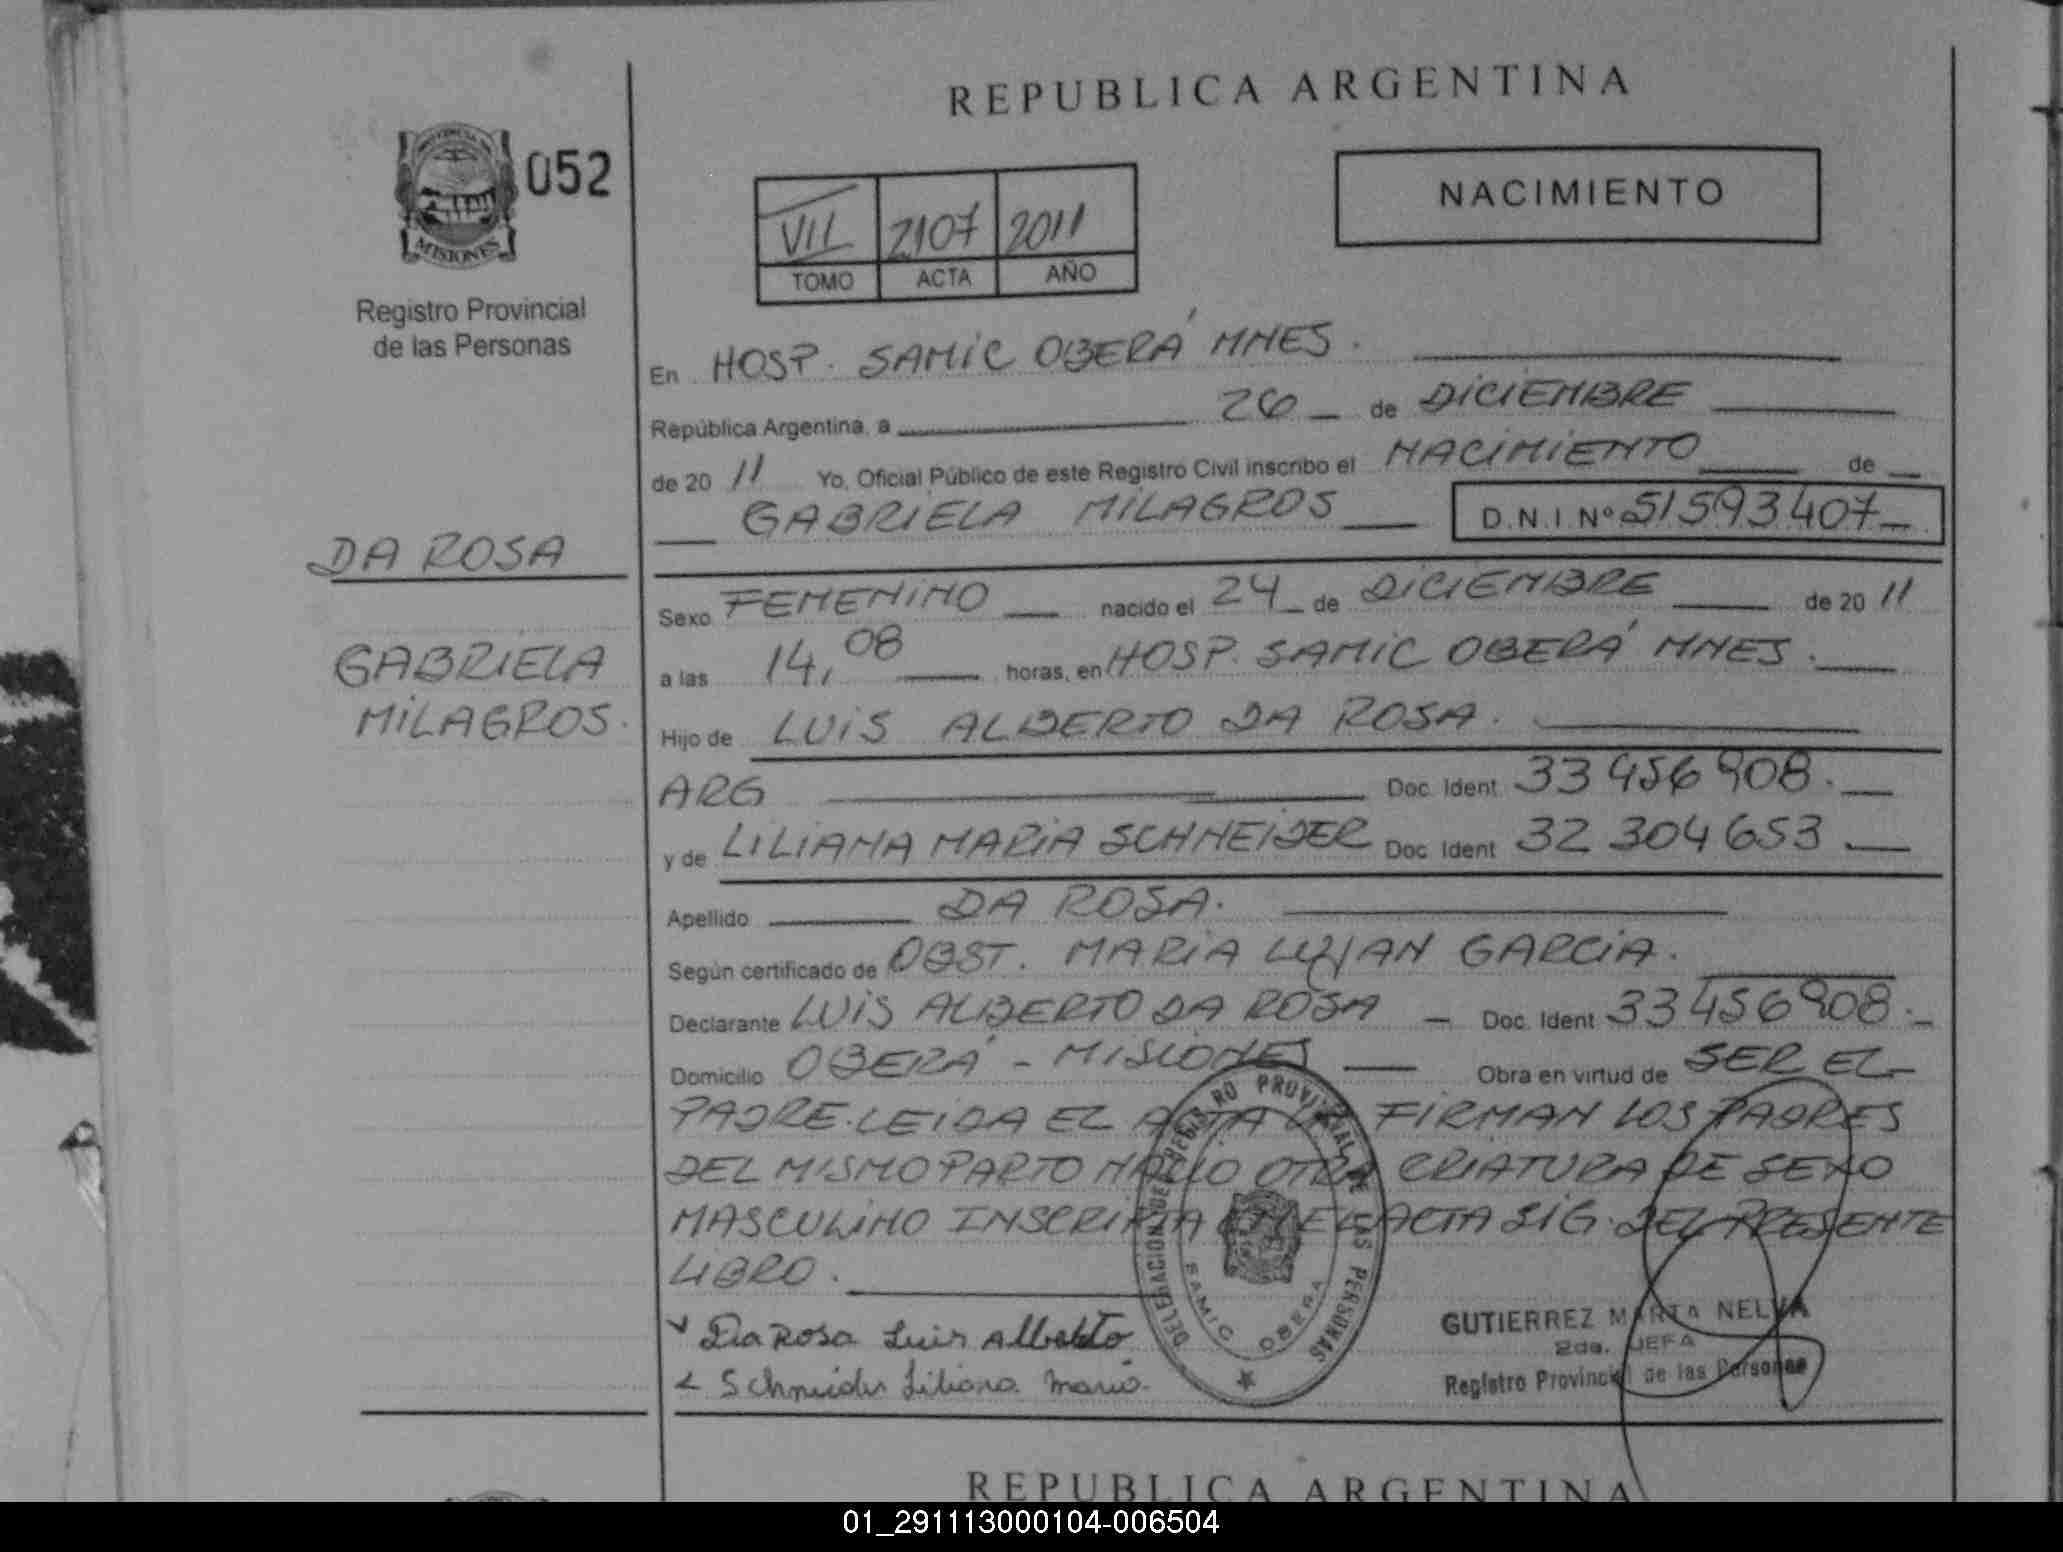 REPUBLICA ARGENTINA
PROVINCIA DE
MISIONES
052
NACIMIENTO
VII 2107 2011
TOMO ACTA AÑO
Registro Provincial
de las Personas
En HOSP. SAMIC OBERÁ MNES.
República Argentina, a 26 de DICIEMBRE
de 20 11 Yo, Oficial Público de este Registro Civil inscribo el NACIMIENTO de
GABRIELA MILAGROS D.N.I Nº 51593407
DA ROSA
Sexo FEMENINO nacido el 24 de DICIEMBRE de 20 11
GABRIELA
MILAGROS.
a las 14,08 horas, en HOSP. SAMIC OBERÁ MNES.
Hijo de LUIS ALBERTO DA ROSA.
ARG Doc. Ident 33 456 908.
y de LILIANA MARIA SCHNEIDER Doc. Ident 32 304 653
Apellido DA ROSA.
Según certificado de OBST. MARIA LUJAN GARCIA.
Declarante LUIS ALBERTO DA ROSA - Doc. Ident 33 456 908.
Domicilio OBERÁ - MISIONES Obra en virtud de SER EL
PADRE. LEIDA EL ACTA LA FIRMAN LOS PADRES
DEL MISMO PARTO NACIO OTRA CRIATURA DE SEXO
MASCULINO INSCRIPTA EN EL ACTA SIG. DEL PRESENTE
LIBRO.
Da Rosa Luis Alberto
Schneider Liliana Maria
DELEGACION DEL REGISTRO PROVINCIAL DE LAS PERSONAS
SAMIC OBERA
GUTIERREZ MARTA NELVA
2da. JEFA
Registro Provincial de las Personas
REPUBLICA ARGENTINA
01_291113000104-006504